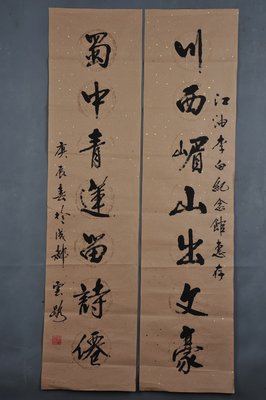 江油李白紀念館惠存
川西嵋山出文豪
蜀中青蓮留詩僊
庚辰春於成都